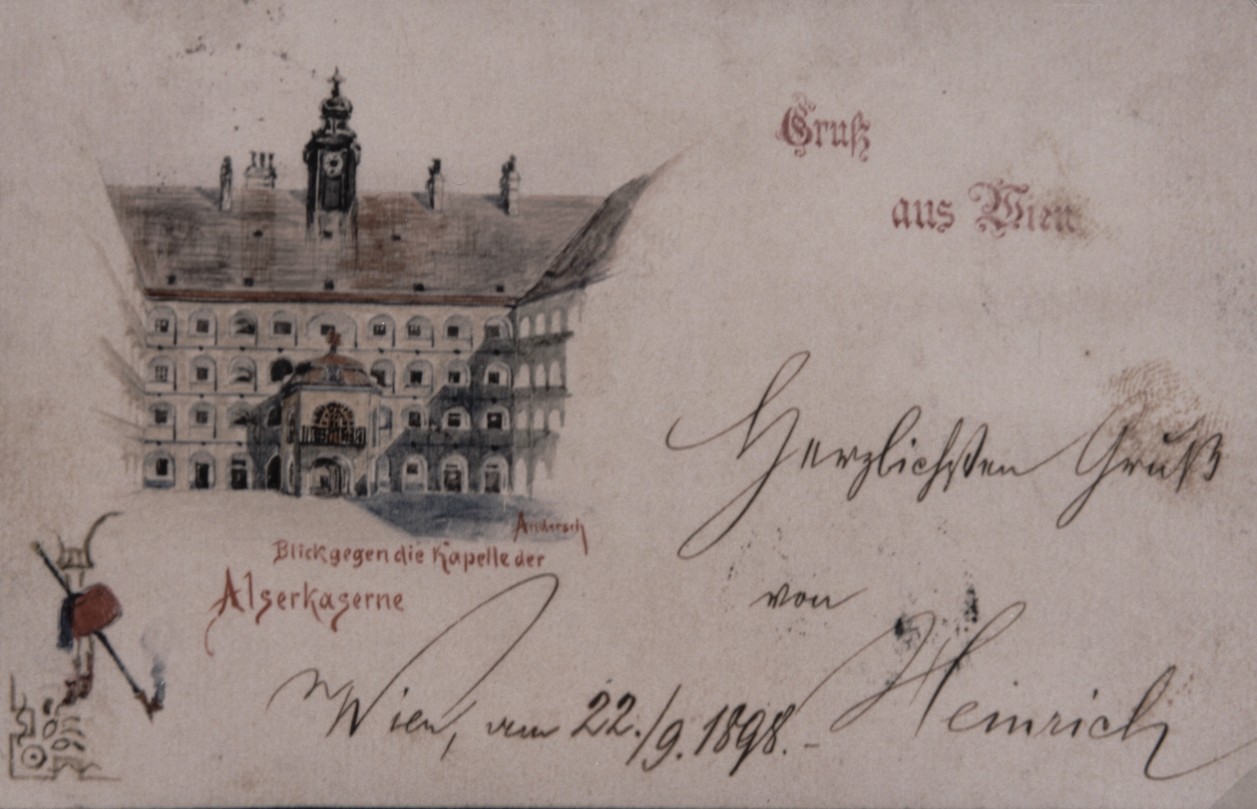 Gruß
aus Wien
Andersch
Blick gegen die Kapelle der
Alserkaserne
Herzlichsten Gruß
von
Heinrich
Wien, am 22./9. 1898.-